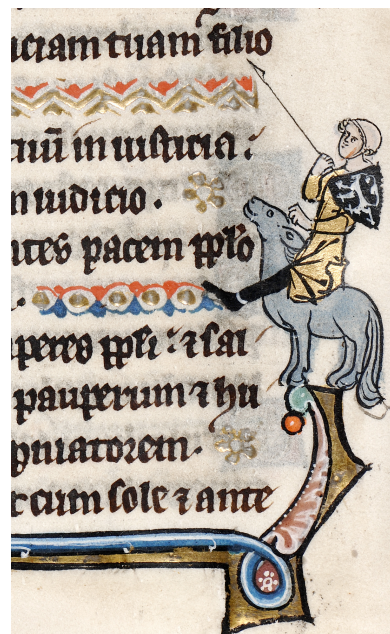 iciam tuam filio
ciū in iusticia :
n iudicio .
ntes pacem pplo
.
peres ppli : ⁊ sal
pauperum ⁊ hu
pniatorem .
t cum sole ⁊ ante